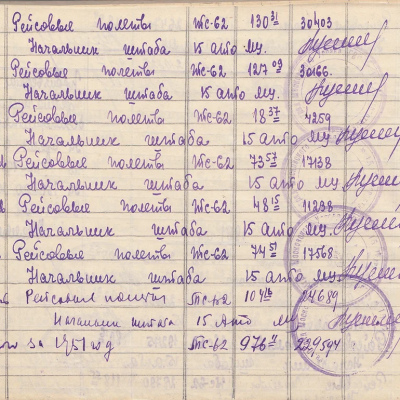 Рейсовые полеты Пс-62 130 31 30403
Начальник штаба 15 АТО МУ.
Рейсовые полеты Пс-62 127 09 30166.
Начальник штаба 15 АТО МУ.
Рейсовые полеты Пс-62 18 37 4259
Начальник штаба 15 АТО МУ
Рейсовые полеты Пс-62 73 57 17138
Начальник штаба 15 АТО МУ
Рейсовые полеты Пс-62 48 15 11238
Начальник штаба 15 АТО МУ.
Рейсовые полеты Пс-62 74 51 17568
Начальник штаба 15 АТО МУ.
Рейсовые полеты Пс-62 104 16 24689
Начальник штаба 15 АТО МУ
за 1951 год Пс-62 976 11 229594